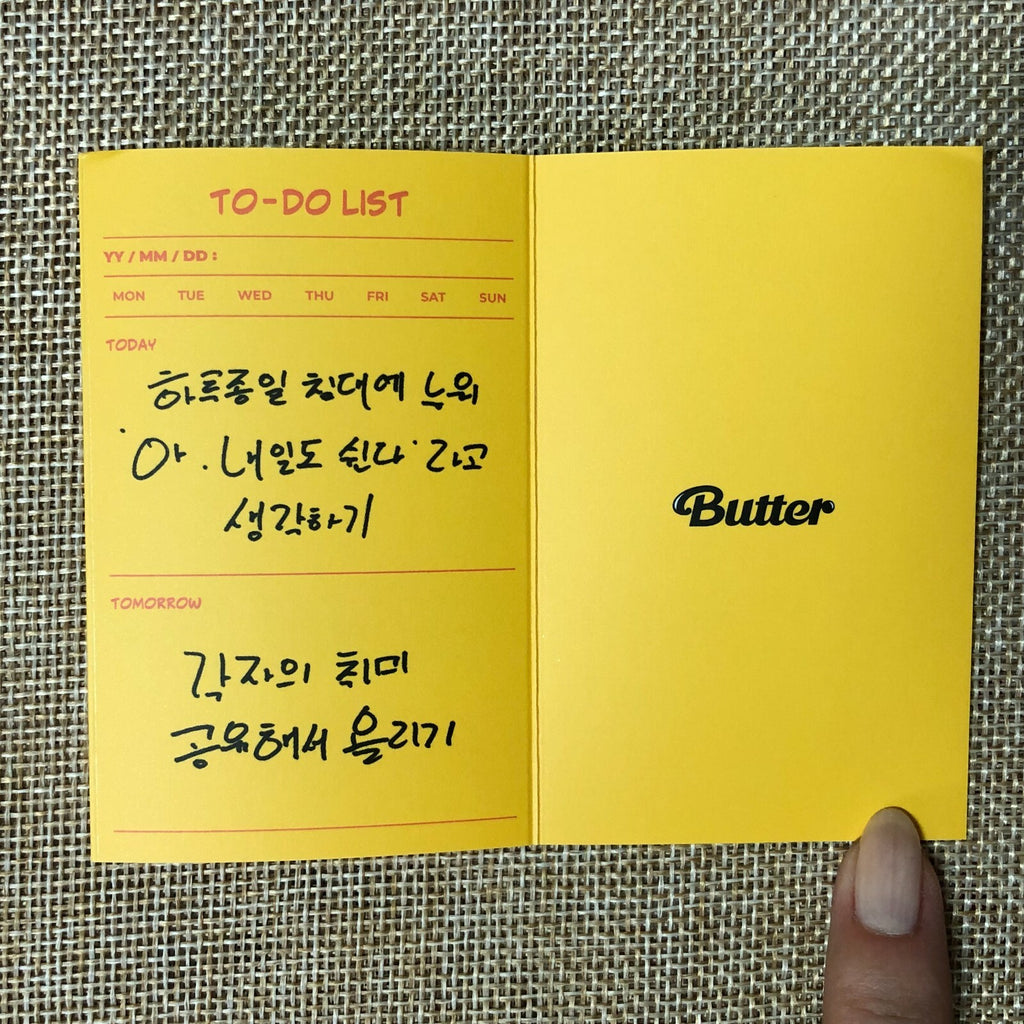 TO-DO LIST
YY / MM / DD :
MON TUE WED THU FRI SAT SUN
TODAY
하루종일 침대에 누워
'아. 내일도 쉰다' 라고
생각하기
TOMORROW
각자의 취미
공유해서 올리기
Butter